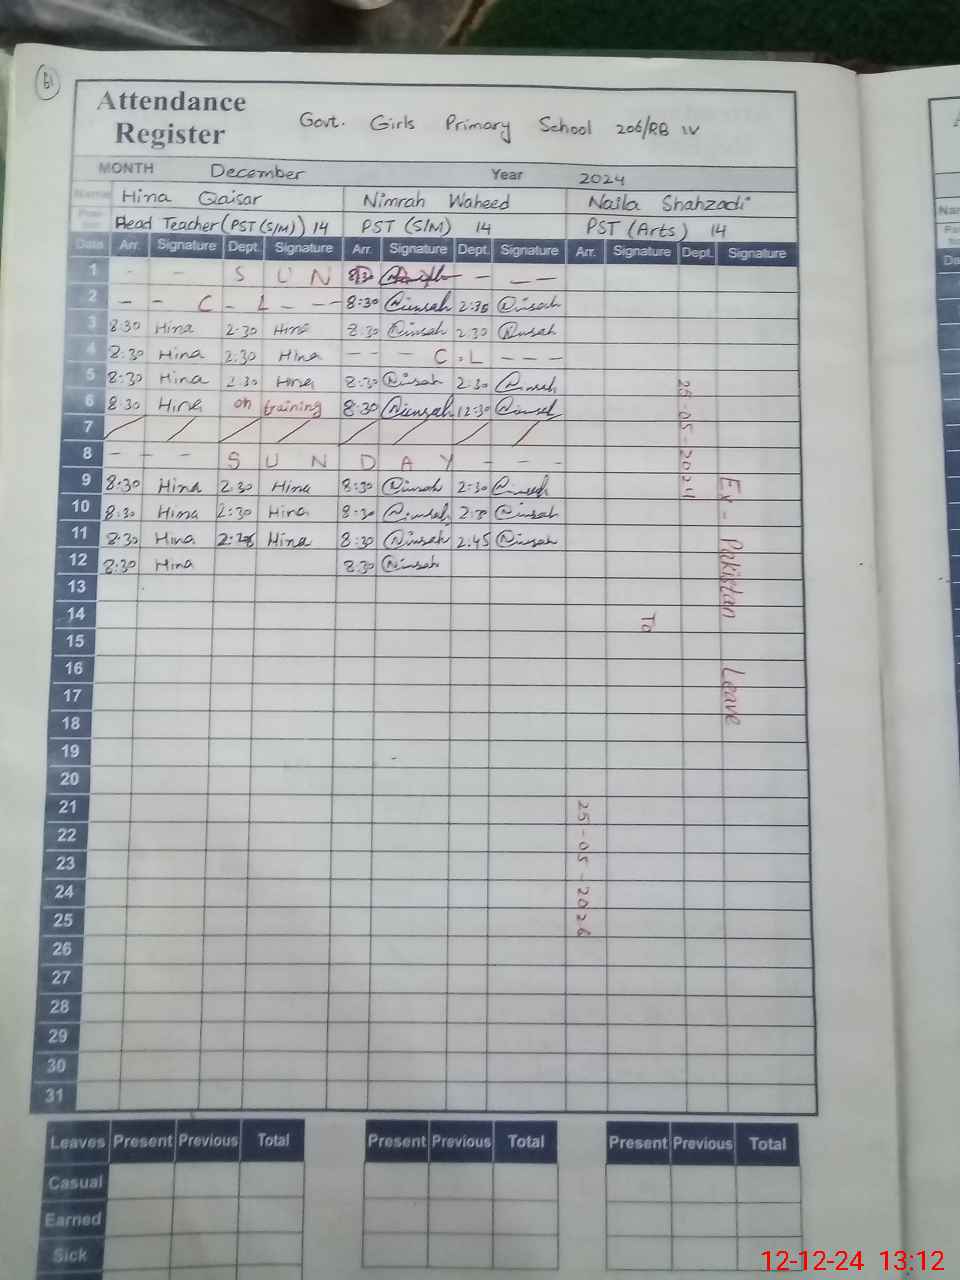 61
Attendance Register
Govt. Girls Primary School 206/RB IV
MONTH December Year 2024
Name Hina Qaisar Nimrah Waheed Naila Shahzadi
Head Teacher (PST (S/M)) 14 PST (S/M) 14 PST (Arts) 14
Date Arr. Signature Dept. Signature Arr. Signature Dept. Signature Arr. Signature Dept. Signature
1 - - S U N 8:30 - - -
2 - - C - L - - - 8:30 2:30
3 8:30 Hina 2:30 Hina 8:30 2:30
4 8:30 Hina 2:30 Hina - - - C.L - - -
5 8:30 Hina 2:30 Hina 8:30 2:30
6 8:30 Hina on training 8:30 12:30
7
8 - - - S U N D A Y - - -
9 8:30 Hina 2:30 Hina 8:30 2:30
10 8:30 Hina 2:30 Hina 8:30 2:30
11 8:30 Hina Hina 8:30 2:45
12 8:30 Hina 8:30
13
14
15
16
17
18
19
20
21
22
23
24
25
26
27
28
29
30
31
Ex-Pakistan Leave
25-05-2024
To
25-05-2026
Leaves Present Previous Total Present Previous Total Present Previous Total
Casual
Earned
Sick
12-12-24 13:12